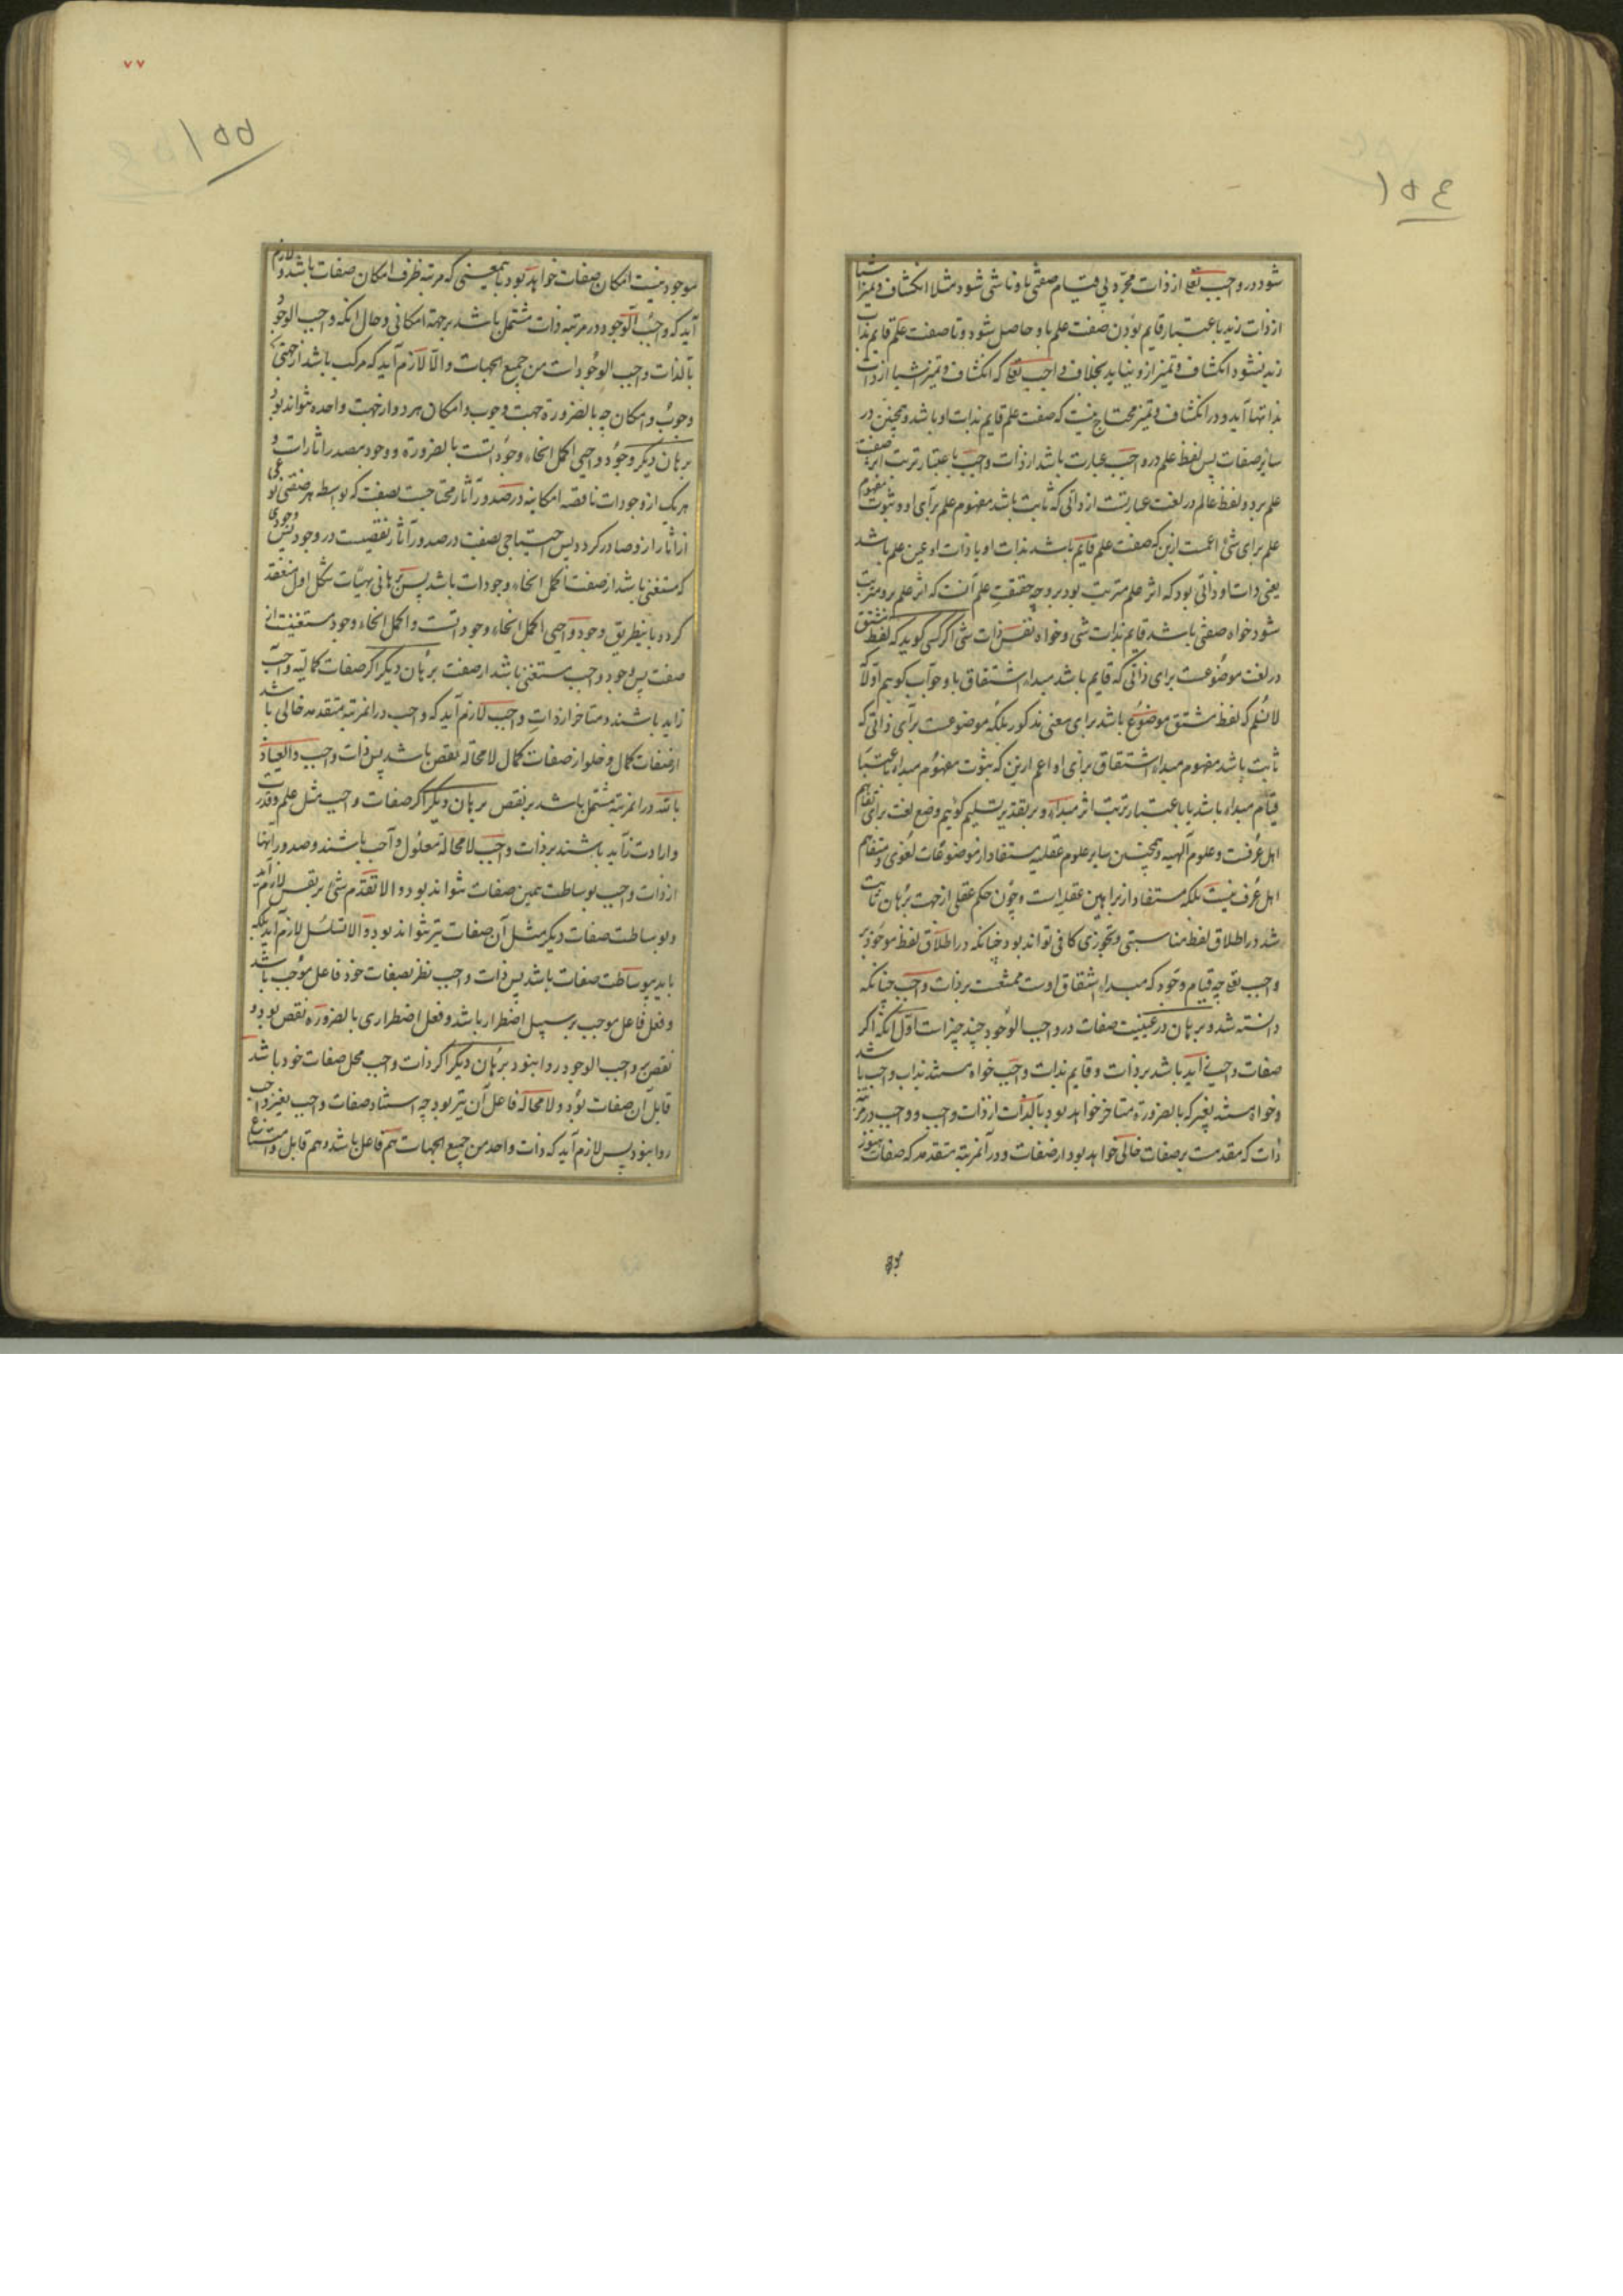 ۱۵۴
شود در واجب تعالی از ذات مجرد بی قیام صفتی باو ناشی شود مثلا انکشاف و تمیز اشیا
از ذات زید باعتبار قایم بودن صفت علم باو حاصل شود و تا صفت علم قایم بذات
زید نشود انکشاف و تمیز ازو نیاید بخلاف واجب تعالی که انکشاف و تمیز اشیا از ذات
بذاتها آید و در انکشاف و تمیز محتاج نیست که صفت علم قایم بذات او باشد و همچنین در
سایر صفات پس لفظ علم در واجب عبارت باشد از ذات واجب باعتبار ترتب اثر صفت
علم برو و لفظ عالم در لغت عبارتست از ذاتی که ثابت باشد مفهوم علم برای او و ثبوت مفهوم
علم برای شئ اعمست ازین که صفت علم قایم باشد بذات او یا ذات او عین علم باشد
یعنی ذات او ذاتی بود که اثر علم مترتب بود برو چه حقیقت علم آنست که اثر علم برو مترتب
شود خواه صفتی باشد قایم بذات شی و خواه نفس ذات شی اگر کسی گوید که لفظ مشتق
در لغت موضوعست برای ذاتی که قایم باشد مبداء اشتقاق باو جواب گوییم اولا
لانسلم که لفظ مشتق موضوع باشد برای معنی مذکور بلکه موضوعست برای ذاتی که
ثابت باشد مفهوم مبداء اشتقاق برای او اعم ازین که ثبوت مفهوم مبداء باعتبار
قیام مبداء باشد یا باعتبار ترتب اثر مبداء و بر تقدیر تسلیم گوئیم وضع لغت برای تفاهم
اهل عرفست و علوم آلهیه و همچنین سایر علوم عقلیه مستفاد از موضوعات لغوی و متفاهم
اهل عرف نیست بلکه مستفاد از براهین عقلیه است و چون حکم عقلی از جهت برهان ثابت
شد در اطلاق لفظ مناسبتی و تجوزی کافی تواند بود چنانکه در اطلاق لفظ موجود بر
واجب تعالی چه قیام وجود که مبداء اشتقاق اوست ممتنعست بر ذات واجب چنانکه
دانسته شد و برهان در عینیت صفات در واجب الوجود چند چیز است اول آنکه اگر
صفات واجبی زاید باشد بر ذات و قایم بذات واجب خواه مستند بذات واجب باشد
و خواه مستند بغیر که بالضرورة متاخر خواهد بود بالذات از ذات واجب و واجب در مرتبه
ذات که مقدمست بر صفات خالی خواهد بود از صفات و در آنمرتبه متقدمه که صفات هنوز
۷۷
۱۵۵
موجود نیست امکان صفات خواهد بود بآنمعنی که مرتبه ظرف امکان صفات باشد و لازم
آید که واجب الوجود در مرتبه ذات مشتمل باشد بر جهة امکانی و حال آنکه واجب الوجود
بالذات واجب الوجود است من جمیع الجهات و الا لازم آید که مرکب باشد از جهتی
وجوب و امکان چه بالضرورة جهت وجوب و امکان هر دو از جهت واحده نتواند بود
برهان دیگر وجود واجبی اکمل انحاء وجوداتست بالضرورة و وجود مصدر اثار است و
هر یک از وجودات ناقصه امکانیه در صدور آثار محتاجست بصفت که بواسطه هر صفتی
از اثار ازو صادر گردد پس احتیاجی بصفت در صدور آثار نقصیست در وجود پس وجودی
که مستغنی باشد از صفت اکمل انحاء وجودات باشد پس برهانی بهیئات شکل اول منعقد
گردد باینطریق وجود واجبی اکمل انحاء وجوداتست و اکمل انحاء وجود مستغنیست از
صفت پس وجود واجب مستغنی باشد از صفت برهان دیگر اگر صفات کمالیه واجب
زاید باشند و متاخر از ذات واجب لازم آید که واجب در آنمرتبه متقدمه خالی باشد
از صفات کمال و خلو از صفات کمال لامحاله نقص باشد پس ذات واجب و العیاذ
بالله در آنمرتبه مشتمل باشد بر نقص برهان دیگر اگر صفات واجب مثل علم و قدرت
و ارادت زاید باشند بر ذات واجب لامحاله معلول واجب باشند و صدور اینها
از ذات واجب بوساطت همین صفات نتواند بود و الا تقدم شئ بر نفس لازم آید
و بوساطت صفات دیگر مثل آن صفات نیز نتواند بود و الا تسلسل لازم آید بلکه
باید بیوساطت صفات باشد پس ذات واجب نظر بصفات خود فاعل موجب باشد
و فعل فاعل موجب بر سبیل اضطرار باشد و فعل اضطراری بالضروره نقص بود و
نقص بر واجب الوجود روا نبود برهان دیگر اگر ذات واجب محل صفات خود باشد
قابل آن صفات بود و لامحاله فاعل آن نیز بود چه استناد صفات واجب بغیر واجب
روا نبود پس لازم آید که ذات واحد من جمیع الجهات هم فاعل باشد و هم قابل و امتناع